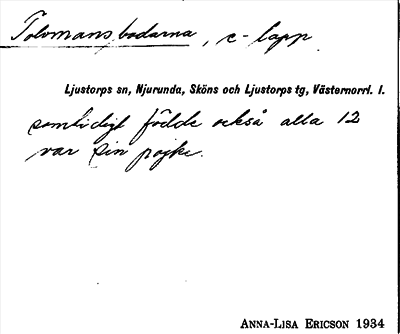 Tolvmansbodarna, c-lapp
Ljustorps sn, Njurunda, Sköns och Ljustorps tg, Västernorrl. l.
samtidigt födde också alla 12
var sin pojke.
ANNA-LISA ERICSON 1934